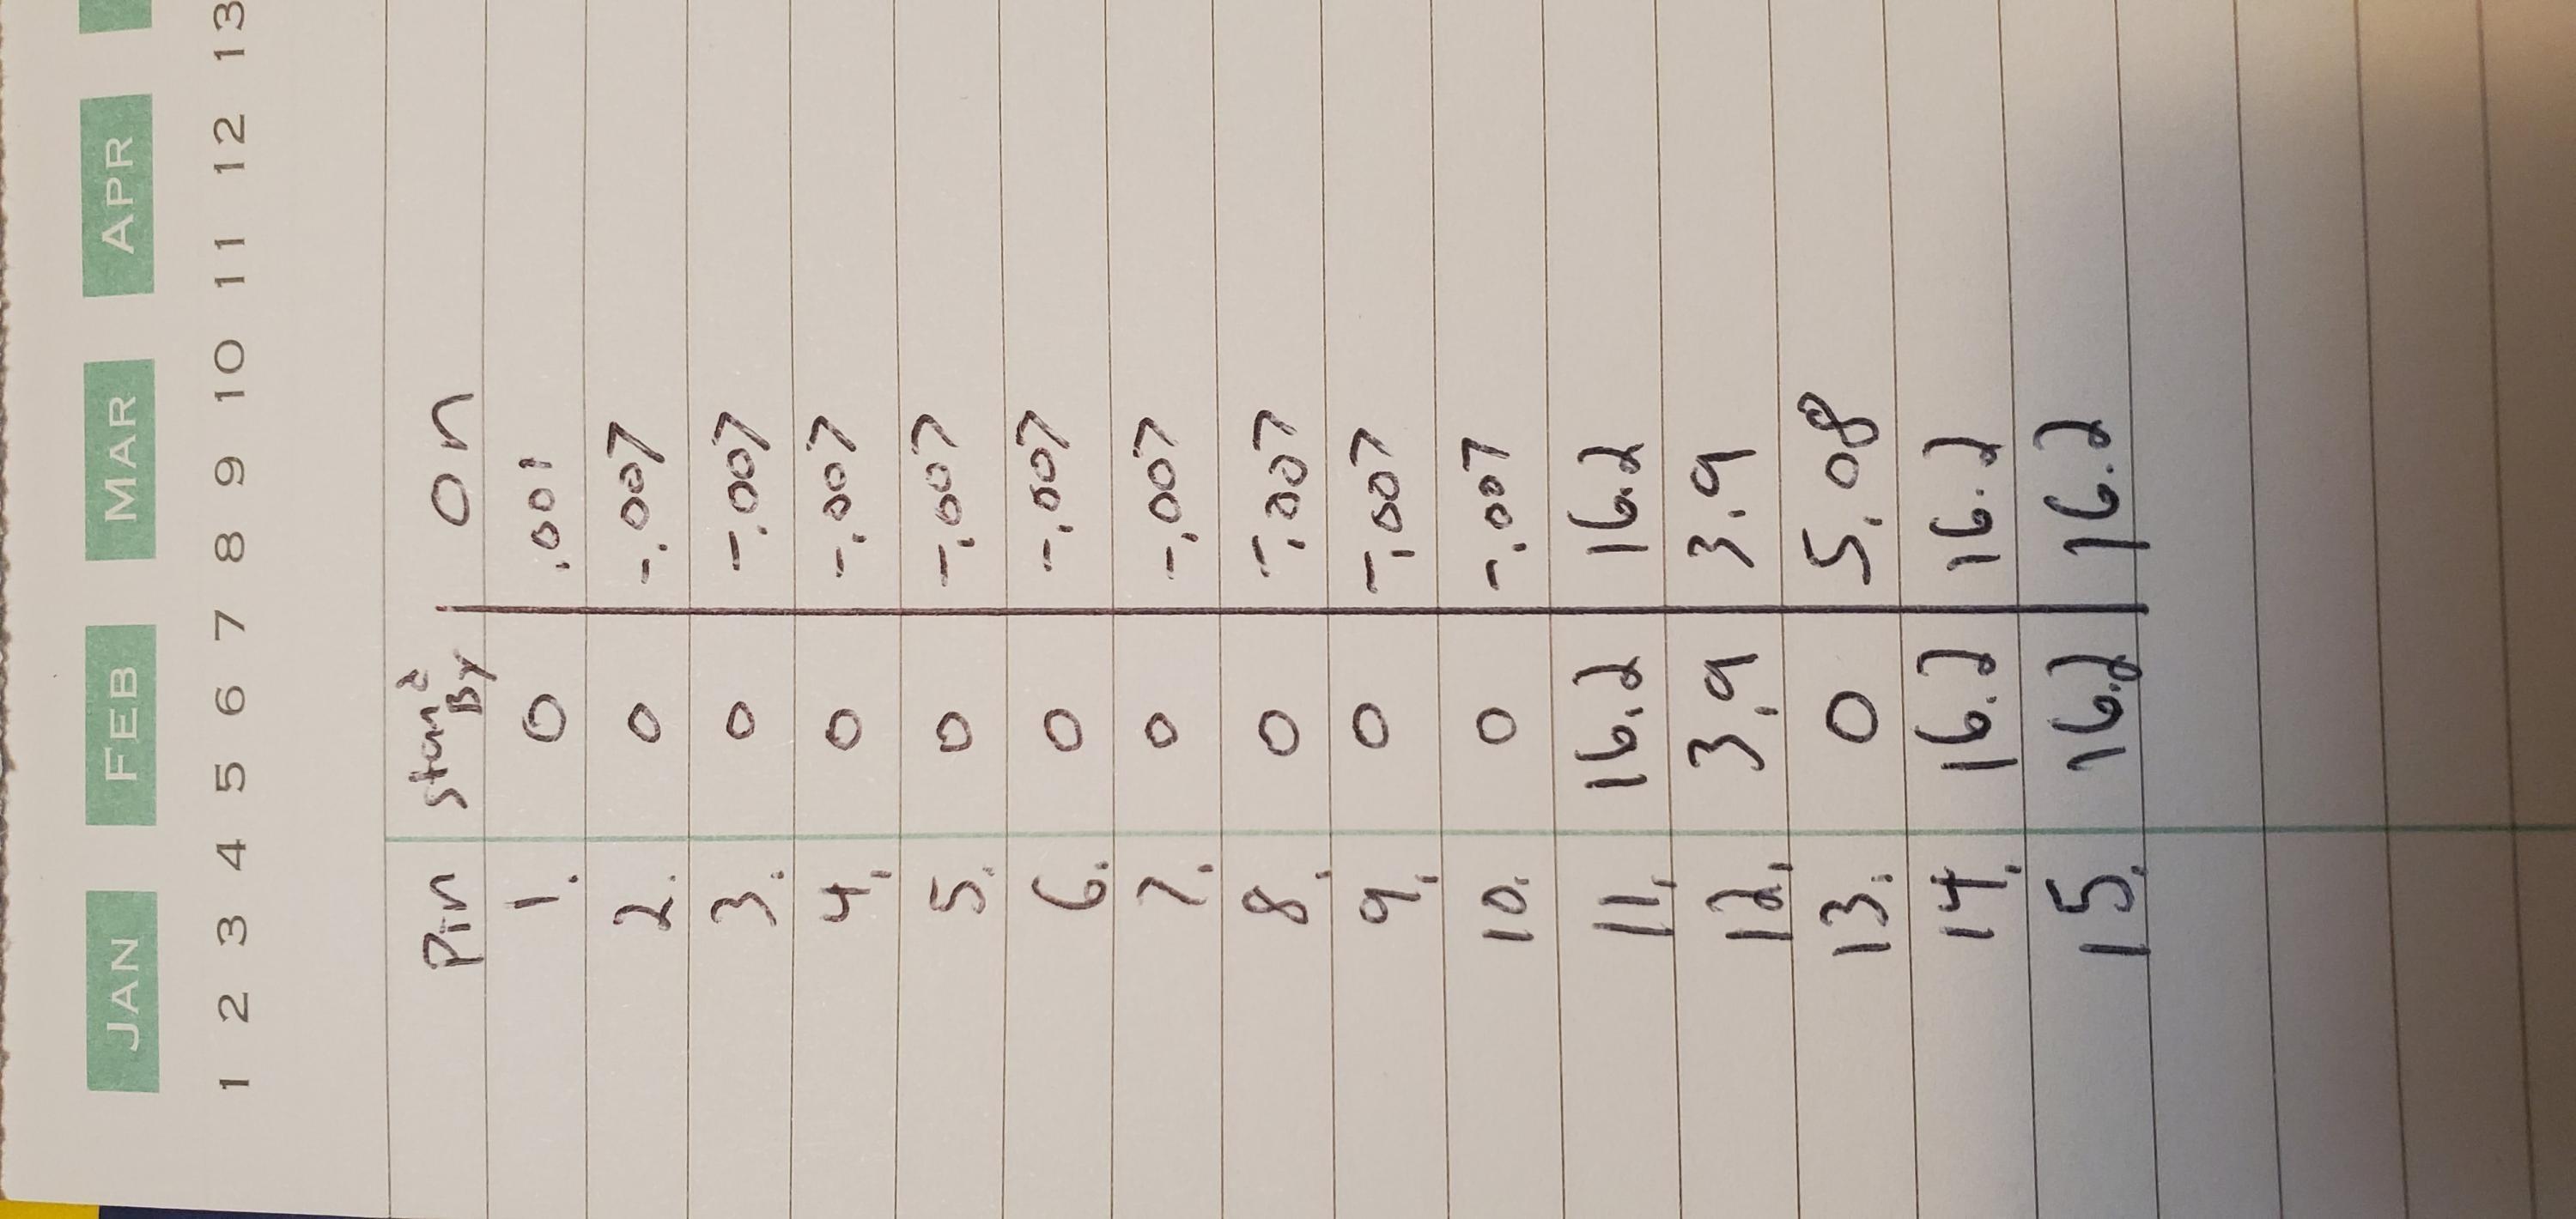 JAN FEB MAR APR
1 2 3 4 5 6 7 8 9 10 11 12 13
Pin Stand By On
1. 0 .001
2. 0 -.007
3. 0 -.007
4. 0 -.007
5. 0 -.007
6. 0 -.007
7. 0 -.007
8. 0 -.007
9. 0 -.007
10. 0 -.007
11. 16.2 16.2
12. 3.9 3.9
13. 0 5.08
14. 16.2 16.2
15. 16.2 16.2